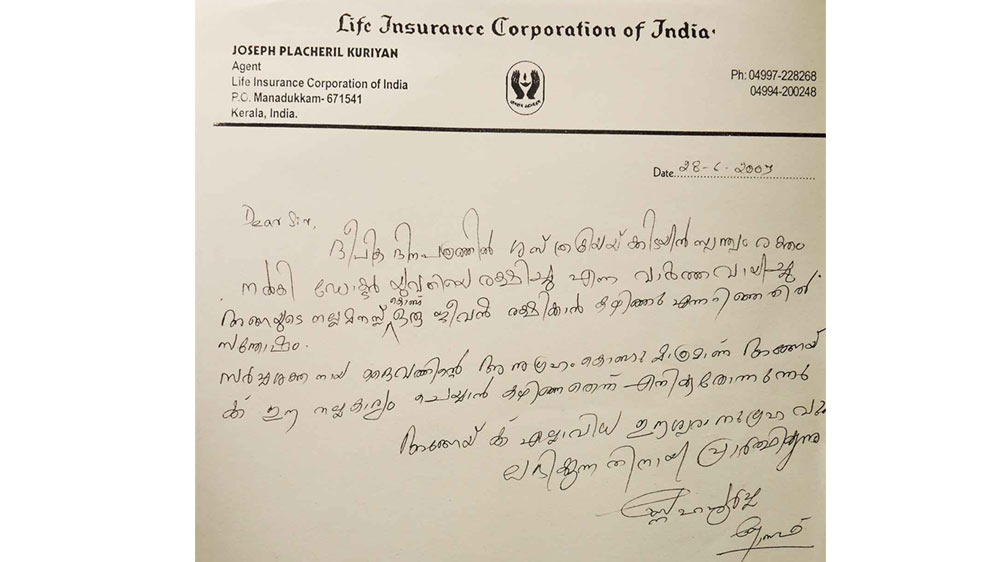 Life Insurance Corporation of India.
JOSEPH PLACHERIL KURIYAN
Agent
Life Insurance Corporation of India
P.O. Manadukkam- 671541
Kerala, India.
Ph: 04997-228268
04994-200248
Date 28-6-2007
Dear Sir,
ദീപിക ദിനപത്രത്തിൽ ശസ്ത്രക്രിയയ്ക്കിടയിൽ സ്വന്തം രക്തം
നൽകി ഡോക്ടർ യുവതിയെ രക്ഷിച്ചു എന്ന വാർത്ത വായിച്ചു
അങ്ങയുടെ നല്ല മനസ്സ് കൊണ്ട് ഒരു ജീവൻ രക്ഷിക്കാൻ കഴിഞ്ഞു എന്നറിഞ്ഞതിൽ
സന്തോഷം.
സർവ്വശക്തനായ ദൈവത്തിന്റെ അനുഗ്രഹം കൊണ്ടു മാത്രമാണ് അങ്ങയ്
ക്ക് ഈ നല്ലകാര്യം ചെയ്യാൻ കഴിഞ്ഞതെന്ന് എനിക്കുതോന്നുന്നു
അങ്ങേയ്ക്ക് എല്ലാവിധ ഈശ്വരാനുഗ്രഹവും
ലഭിക്കുന്നതിനായി പ്രാർത്ഥിക്കുന്നു